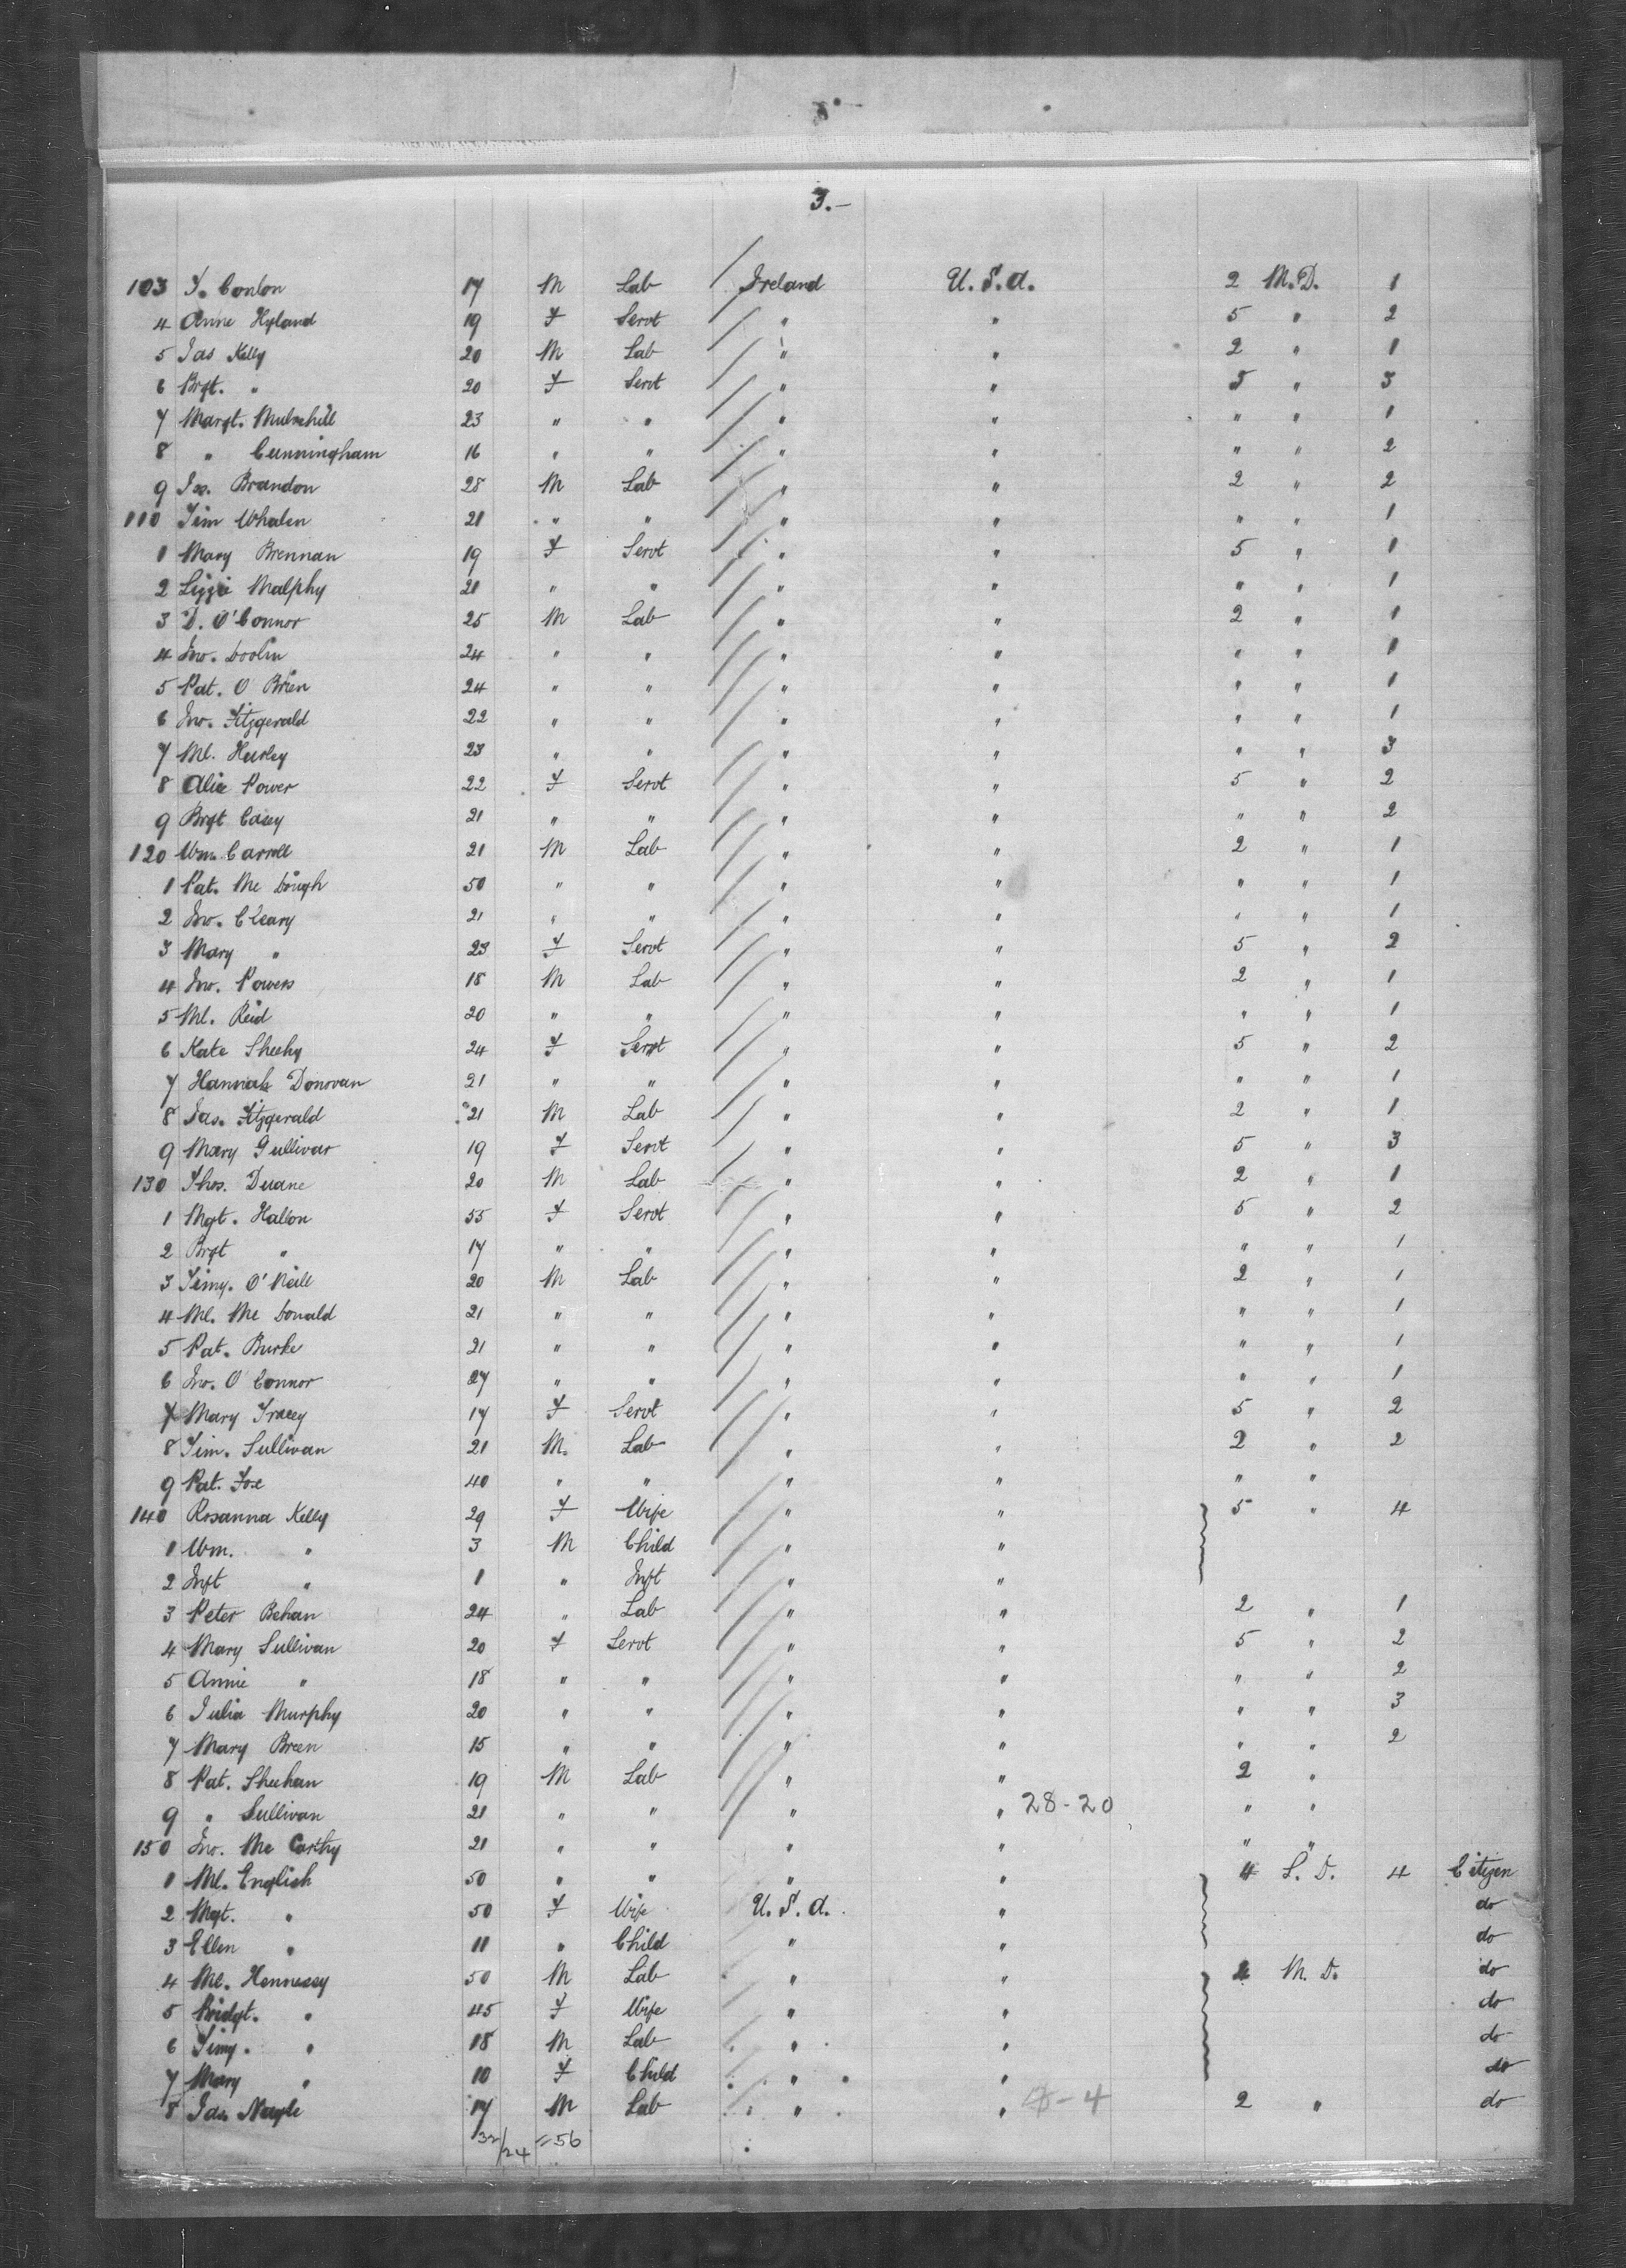 3.—
103 T. Conlon 17 M Lab Ireland U.S.A. 2 M.D. 1
4 Anne Hyland 19 F Servt " " 5 " 2
5 Jas Kelly 20 M Lab " " 2 " 1
6 Brgt. " 20 F Servt " " 5 " 3
7 Margt. Mulvehill 23 " " " " " " 1
8 " Cunningham 16 " " " " " " 2
9 Jas. Brandon 28 M Lab " " 2 " 2
110 Tim Whalen 21 " " " " " " 1
1 Mary Brennan 19 F Servt " " 5 " 1
2 Lizzie Malphy 21 " " " " " " 1
3 D. O'Connor 25 M Lab " " 2 " 1
4 Jno. Doolin 24 " " " " " " 1
5 Pat. O Brien 24 " " " " " " 1
6 Jno. Fitzgerald 22 " " " " " " 1
7 Ml. Hurley 23 " " " " " " 3
8 Alice Power 22 F Servt " " 5 " 2
9 Brgt Casey 21 " " " " " " 2
120 Wm. Carroll 21 M Lab " " 2 " 1
1 Pat. Mc Dough 50 " " " " " " 1
2 Jno. Cleary 21 " " " " " " 1
3 Mary " 23 F Servt " " 5 " 2
4 Jno. Powers 18 M Lab " " 2 " 1
5 Ml. Reid 20 " " " " " " 1
6 Kate Sheehy 24 F Servt " " 5 " 2
7 Hannah Donovan 21 " " " " " " 1
8 Jas. Fitzgerald 21 M Lab " " 2 " 1
9 Mary Gullivar 19 F Servt " " 5 " 3
130 Thos. Duane 20 M Lab " " 2 " 1
1 Mgt. Hallon 55 F Servt " " 5 " 2
2 Brgt " 17 " " " " " " 1
3 Timy. O'Neill 20 M Lab " " 2 " 1
4 Ml. Mc Donald 21 " " " " " " 1
5 Pat. Burke 21 " " " " " " 1
6 Jno. O Connor 27 " " " " " " 1
7 Mary Tracey 17 F Servt " " 5 " 2
8 Tim. Sullivan 21 M. Lab " " 2 " 2
9 Pat. Foe 40 " " " " " "
140 Rosanna Kelly 29 F Wife " " 5 " 4
1 Wm. " 3 M Child " "
2 Inft " 1 " Inft " "
3 Peter Behan 24 " Lab " " 2 " 1
4 Mary Sullivan 20 F Servt " " 5 " 2
5 Annie " 18 " " " " " " 2
6 Julia Murphy 20 " " " " " " 3
7 Mary Breen 15 " " " " " " 2
8 Pat. Sheehan 19 M Lab " " 2 "
9 " Sullivan 21 " " " " 28-20 " "
150 Jno. Mc Carthy 21 " " " " " "
1 Ml. English 50 " " " " 4 S.D. 4 Citizen
2 Mgt. " 50 F Wife U.S.A. " do
3 Ellen " 11 " Child " " do
4 Ml. Hennessy 50 M Lab " " 4 M.D. do
5 Bridgt. " 45 F Wife " " do
6 Timy. " 18 M Lab " " do
7 Mary " 10 F Child " " do
8 Jas. Nagle 17 M Lab " " -4 2 " do
32/24 =56